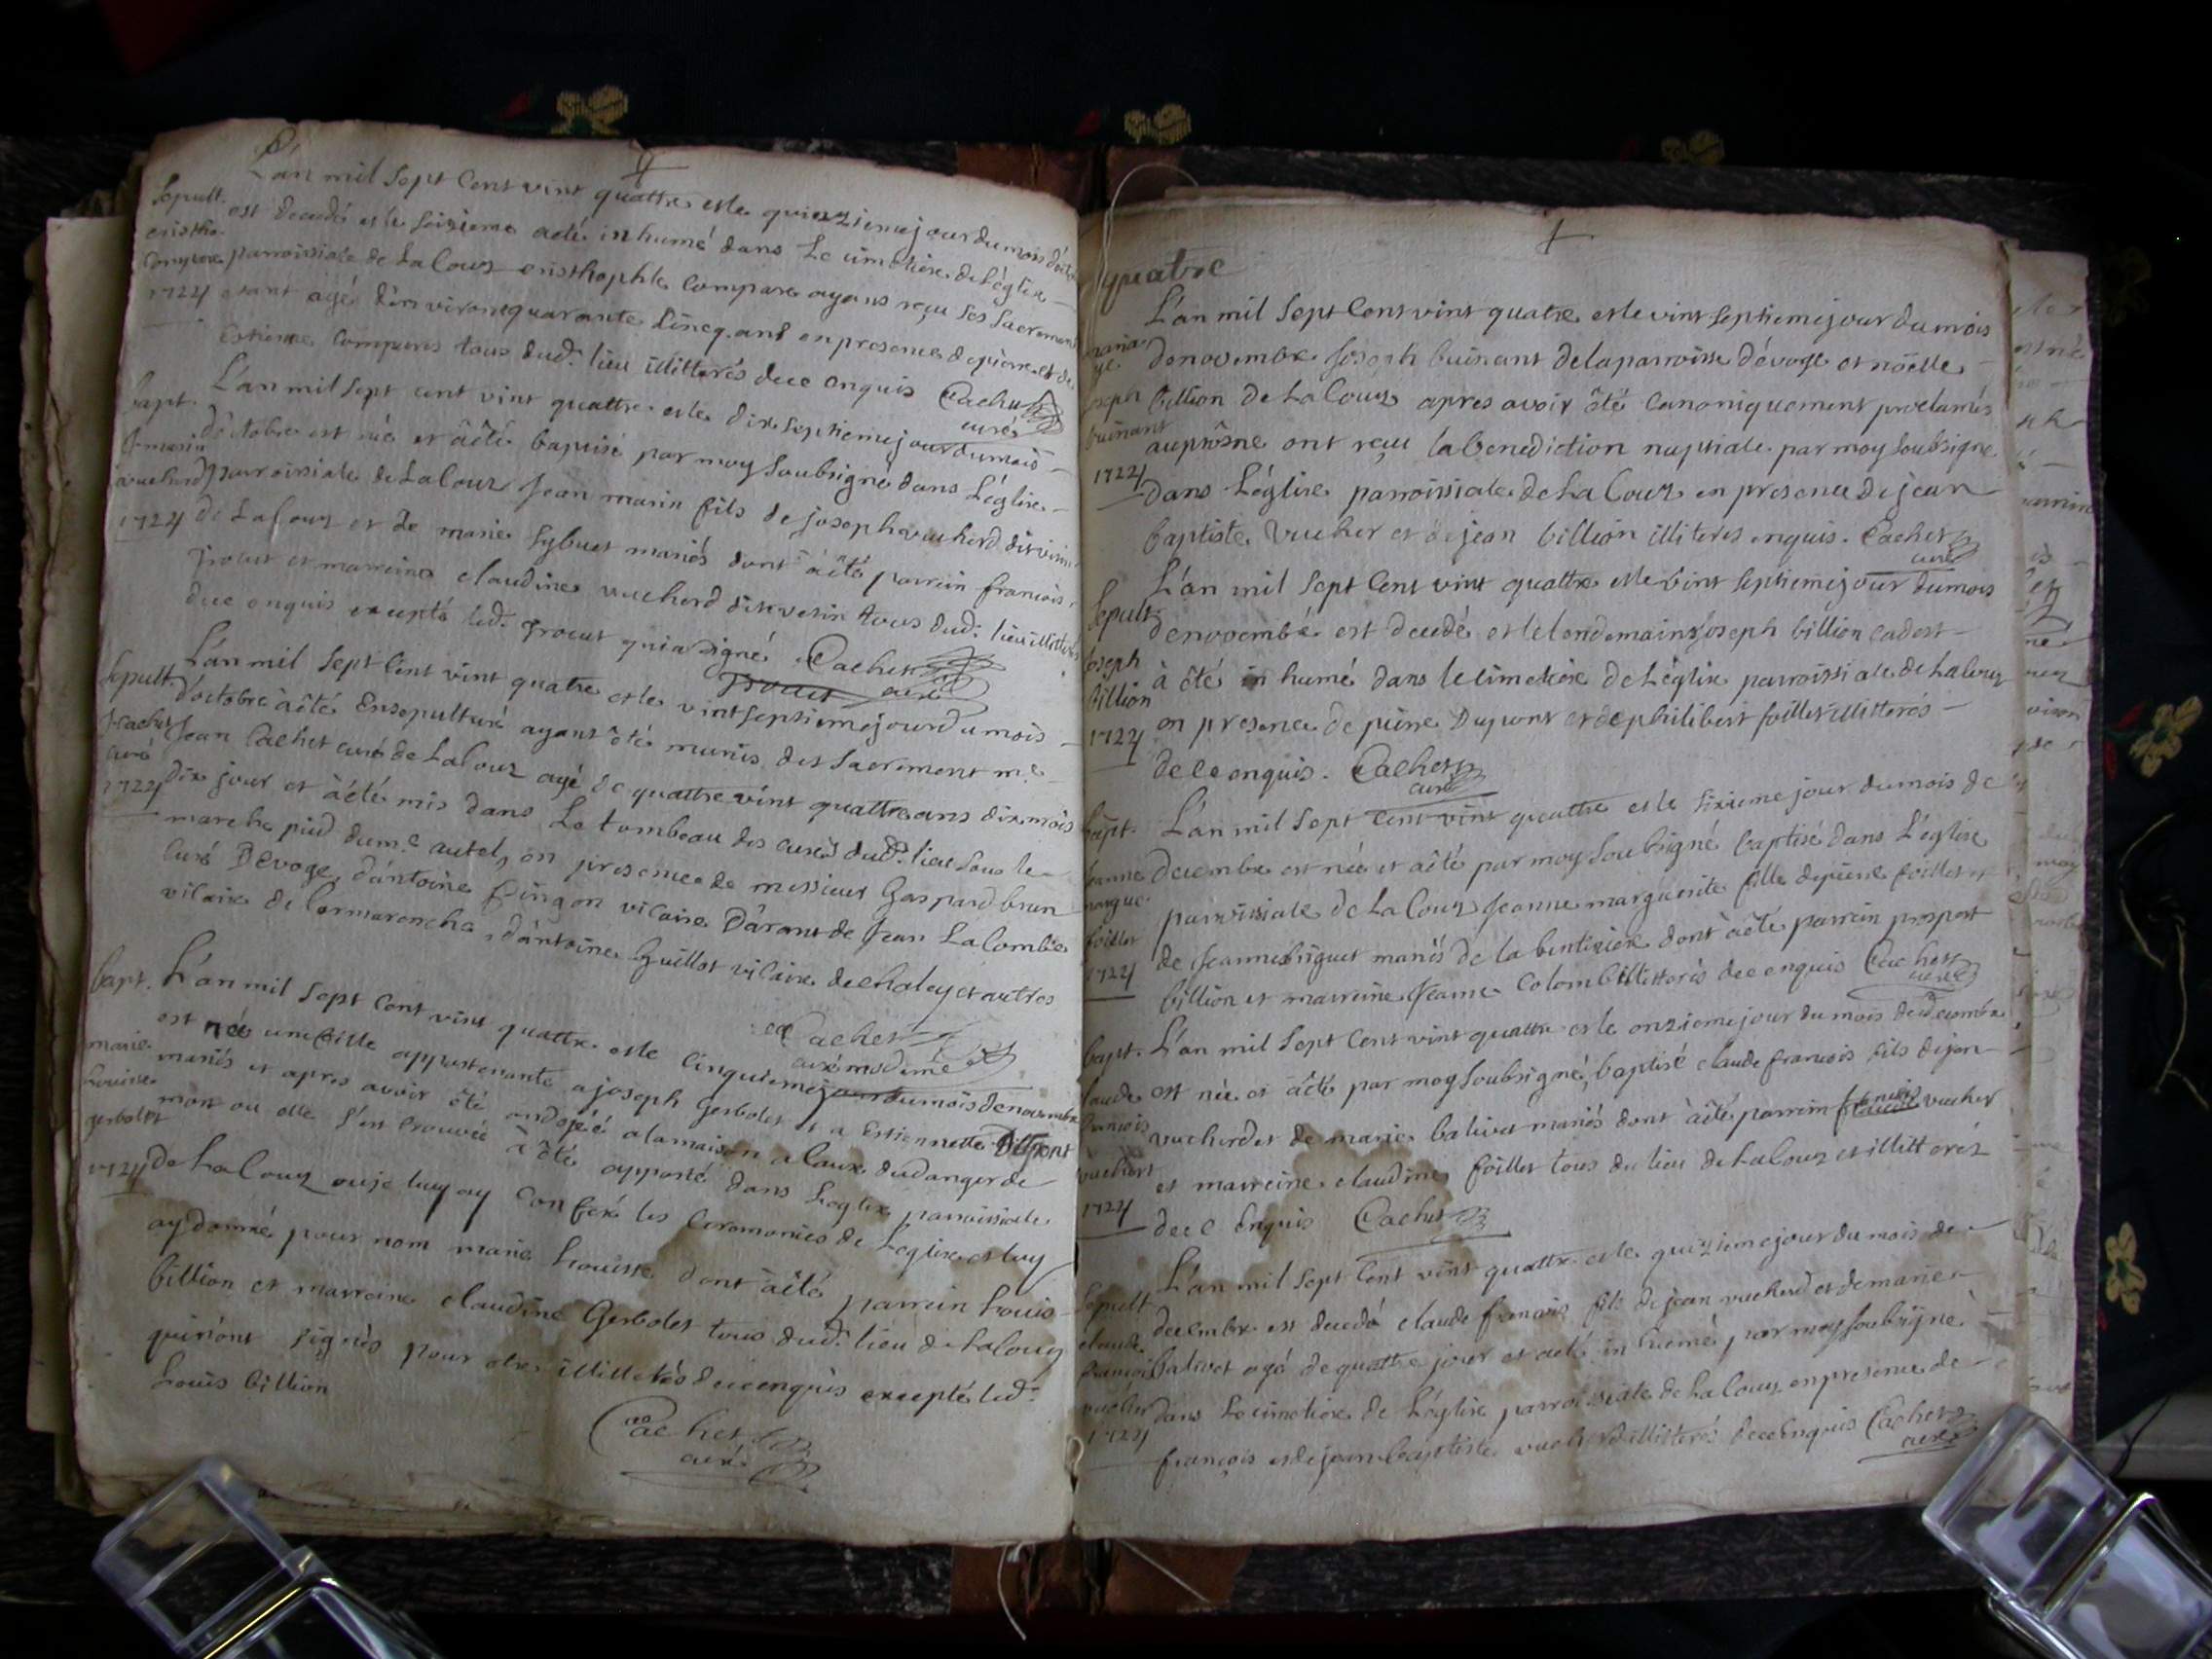 L'an mil sept cent vint quattre et le quienzieme jour du mois d'octob
sepult. est decedé et le seizieme a eté inhumé dans le cimetiere de L'églize
cristho. parroissiale de Lalouz cristhophle Compare ayans reçu ses sacrements
Compere
1724 etant agé d'environ quarante sincq ans en presence de pierre et de
estienne Comperes tous dud. lieu illitterés de ce enquis Cachet
curé
bapt. L'an mil sept cent vint quattre et le dix septieme jour du mois
d'octobre est née et àété baptisé par moy soubsigné dans L'églize
J. marin parroissiale de Lalouz Jean marin fils de joseph vucherd dit verin
vucherd
1724 de Lalouz et de marie sybuet mariés dont àété parrein francois
Prouet et marreine claudine vucherd dit verin tous dud. lieu illitterés
de ce enquis excepté led. Prouet qui a signé. Cachet
Prouet curé
sepult. L'an mil sept cent vint quatre et le vint septieme jour du mois
d'octobre àété Ensepulturé ayant été munis des sacrement m.e
J. cachet Jean Cachet curé de Lalouz agé de quattre vint quattre ans dix mois
curé
1724 dix jour et àété mis dans Le tombeau des curés dud. lieu sous le
marche pied du m.e autel, en presence de messieur Gaspard brun
curé D'evoge, d'antoine Pingon vicaire D'arant de Jean Lalombe
vicaire de Cormaranche, d'antoine Guillot vicaire de chaley et autres
Cachet
curé moderne
bapt. L'an mil sept cent vint quattre et le cinquieme jour du mois de novembre
est née une fille appartenante a joseph Gerbolet et a Estiennette Dupont
marie mariés et apres avoir été ondojéé a la maison a cause du danger de
Louise mort ou elle s'est trouvée à été apporté dans l'eglize parroissiale
gerbolet
1724 de Lalouz ou je luy ay Conferé les Ceremonies de L'eglize et luy
ay donné pour nom marie Louisse dont àété parrein Louis
billion et marreine claudine Gerbolet tous dud. lieu de Lalouz
qui n'ont signés pour etre illitterés de ce enquis excepté led.
Louis billion
Cachet
curé
quatre
L'an mil sept Cent vint quatre et le vint septieme jour du mois
maria- de novembre Joseph buinant de la parroisse d'évoge et nöelle
ge
joseph billion de Lalouz apres avoir été Canoniquement proclamés
buinant au prosne ont reçu la benediction nuptiale par moy soubsigne
1724 dans L'églize parroissiale de Lalouz en presence de jean
baptiste Vucher et de jean billion illiteres enquis. Cachet
curé
L'an mil sept Cent vint quattre et le vint septieme jour du mois
sepult. de novembre est decedé et le lendemain joseph billion cadest
joseph à été inhumé dans le cimetiere de L'églize parroissiale de Lalouz
billion
1724 en presence de pierre Dupont et de philibert foillet illitterés
de ce enquis. Cachet
curé
bapt. L'an mil sept cent vint quattre et le sixieme jour du mois de
Jeanne decembre est née et àété par moy soubsigné baptisé dans L'églize
margue. parroissiale de Lalouz Jeanne marguerite fille de pierre foillet et
foillet de Jeanne buguet mariés de la bertiniere dont àété parrein prospert
1724 billion et marreine Jeanne Colomb illitterés de ce enquis Cachet
curé
bapt. L'an mil sept cent vint quattre et le onzieme jour du mois de decembre
claude est née et àété par moy soubsigné, baptisé claude francois fils de jean
francois vucherd et de marie balivet mariés dont àété parrein vucher
vucherd et marreine claudine foillet tous du lieu de Lalouz et illitterés
1724 de ce enquis Cachet
L'an mil sept cent vint quattre et le quinzieme jour du mois de
sepult. decembre est decedé claude francois fils de jean vucherd et de marie
claude
francois balivet agé de quattre jour et àeté inhumé par moy soubsigné
vucher dans Le cimetiere de L'églize parroissiale de Lalouz en presence de
1724 françois et de jean baptiste vucherd illitterés de ce enquis Cachet
curé